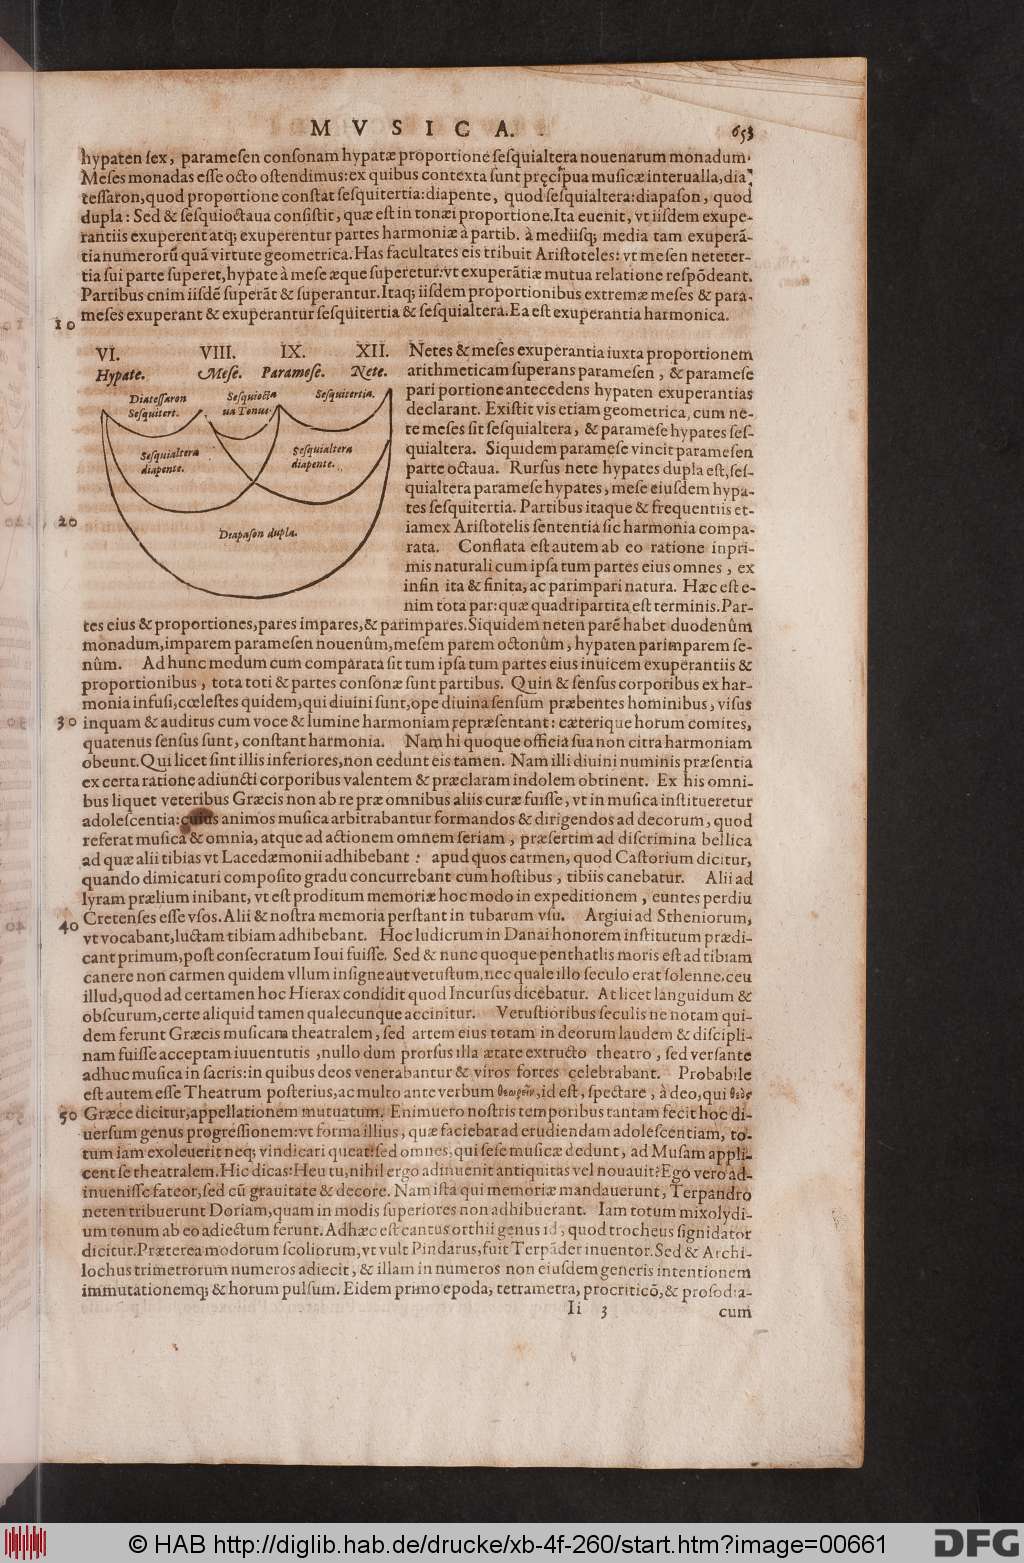 MVSICA. 653
hypaten sex, paramesen consonam hypatæ proportione sesquialtera nouenarum monadum.
Meses monadas esse octo ostendimus: ex quibus contexta sunt pręcipua musicæ interualla, dia-
tessaron, quod proportione constat sesquitertia: diapente, quod sesquialtera: diapason, quod
dupla: Sed & sesquioctaua consistit, quæ est in tonæi proportione. Ita euenit, vt iisdem exupe-
rantiis exuperent atq; exuperentur partes harmoniæ à partib. à mediisq; media tam exuperã-
tia numerorũ quã virtute geometrica. Has facultates eis tribuit Aristoteles: vt mesen neteter-
tia sui parte superet, hypate à mese æque superetur: vt exuperãtiæ mutua relatione respõdeant.
Partibus enim iisdẽ superãt & superantur. Itaq; iisdem proportionibus extremæ meses & para-
10 meses exuperant & exuperantur sesquitertia & sesquialtera. Ea est exuperantia harmonica.
VI. VIII. IX. XII.
Hypate. Mese. Paramese. Nete.
Diatessaron Sesquiocta Sesquitertia.
Sesquitert. ua Tonus.
Sesquialtera Sesquialtera
diapente. diapente.
Diapason dupla.
Netes & meses exuperantia iuxta proportionem
arithmeticam superans paramesen, & paramese
pari portione antecedens hypaten exuperantias
declarant. Existit vis etiam geometrica, cum ne-
te meses sit sesquialtera, & paramese hypates ses-
quialtera. Siquidem paramese vincit paramesen
parte octaua. Rursus nete hypates dupla est, ses-
quialtera paramese hypates, mese eiusdem hypa-
20 tes sesquitertia. Partibus itaque & frequentiis et-
iam ex Aristotelis sententia sic harmonia compa-
rata. Conflata est autem ab eo ratione inpri-
mis naturali cum ipsa tum partes eius omnes, ex
infin ita & finita, ac parimpari natura. Hæc est e-
nim tota par: quæ quadripartita est terminis. Par-
tes eius & proportiones, pares impares, & parimpares. Siquidem neten parẽ habet duodenûm
monadum, imparem paramesen nouenûm, mesem parem octonûm, hypaten parimparem se-
nûm. Ad hunc modum cum comparata sit tum ipsa tum partes eius inuicem exuperantiis &
proportionibus, tota toti & partes consonæ sunt partibus. Quin & sensus corporibus ex har-
monia infusi, cœlestes quidem, qui diuini sunt, ope diuina sensum præbentes hominibus, visus
30 inquam & auditus cum voce & lumine harmoniam repræsentant: cæterique horum comites,
quatenus sensus sunt, constant harmonia. Nam hi quoque officia sua non citra harmoniam
obeunt. Qui licet sint illis inferiores, non cedunt eis tamen. Nam illi diuini numinis præsentia
ex certa ratione adiuncti corporibus valentem & præclaram indolem obtinent. Ex his omni-
bus liquet veteribus Græcis non ab re præ omnibus aliis curæ fuisse, vt in musica institueretur
adolescentia: cuius animos musica arbitrabantur formandos & dirigendos ad decorum, quod
referat musica & omnia, atque ad actionem omnem seriam, præsertim ad discrimina bellica
ad quæ alii tibias vt Lacedæmonii adhibebant: apud quos carmen, quod Castorium dicitur,
quando dimicaturi composito gradu concurrebant cum hostibus, tibiis canebatur. Alii ad
lyram prælium inibant, vt est proditum memoriæ hoc modo in expeditionem, euntes perdiu
Cretenses esse vsos. Alii & nostra memoria perstant in tubarum vsu. Argiui ad Stheniorum,
40 vt vocabant, luctam tibiam adhibebant. Hoc ludicrum in Danai honorem institutum prædi-
cant primum, post consecratum Ioui fuisse. Sed & nunc quoque penthatlis moris est ad tibiam
canere non carmen quidem vllum insigne aut vetustum, nec quale illo seculo erat solenne, ceu
illud, quod ad certamen hoc Hierax condidit quod Incursus dicebatur. At licet languidum &
obscurum, certe aliquid tamen qualecunque accinitur. Vetustioribus seculis ne notam qui-
dem ferunt Græcis musicam theatralem, sed artem eius totam in deorum laudem & discipli-
nam fuisse acceptam iuuentutis, nullo dum prorsus illa ætate extructo theatro, sed versante
adhuc musica in sacris: in quibus deos venerabantur & viros fortes celebrabant. Probabile
est autem esse Theatrum posterius, ac multo ante verbum θεωρεῖν, id est, spectare, à deo, qui θεὸς
50 Græce dicitur, appellationem mutuatum. Enimuero nostris temporibus tantam fecit hoc di-
uersum genus progressionem: vt forma illius, quæ faciebat ad erudiendam adolescentiam, to-
tum iam exoleuerit neq; vindicari queat: sed omnes, qui sese musicæ dedunt, ad Musam appli-
cent se theatralem. Hic dicas: Heu tu, nihil ergo adinuenit antiquitas vel nouauit? Ego vero ad-
inuenisse fateor, sed cũ grauitate & decore. Nam ista qui memoriæ mandauerunt, Terpandro
neten tribuerunt Doriam, quam in modis superiores non adhibuerant. Iam totum mixolydi-
um tonum ab eo adiectum ferunt. Ad hæc est cantus orthii genus id, quod trocheus signidator
dicitur. Præterea modorum scoliorum, vt vult Pindarus, fuit Terpãder inuentor. Sed & Archi-
lochus trimetrorum numeros adiecit, & illam in numeros non eiusdem generis intentionem
immutationemq; & horum pulsum. Eidem primo epoda, tetrametra, procriticõ, & prosodia-
Ii 3 cum
© HAB http://diglib.hab.de/drucke/xb-4f-260/start.htm?image=00661
DFG